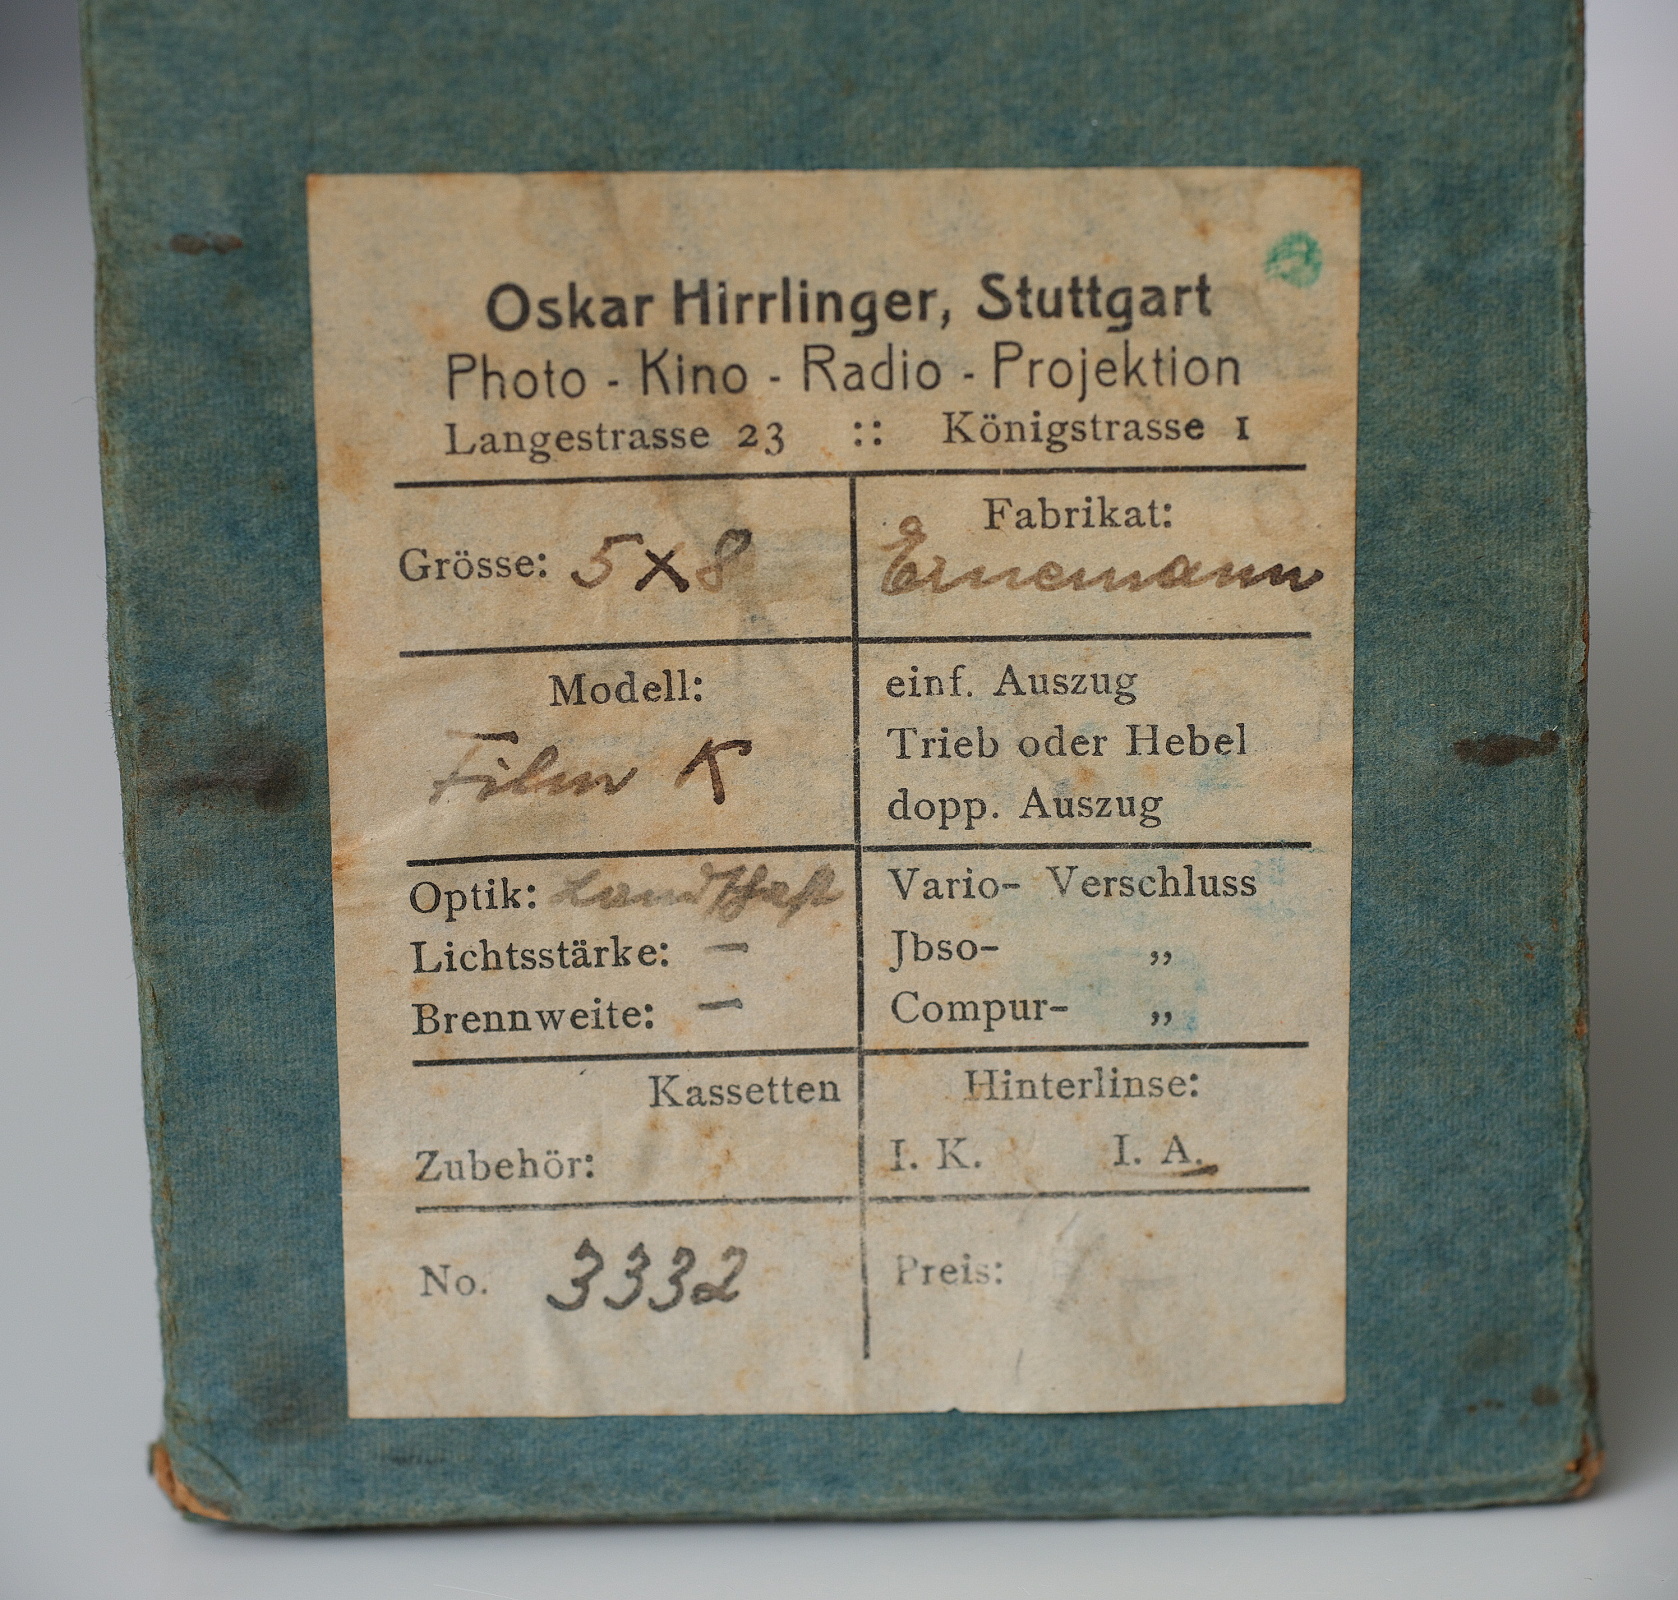 Oskar Hirrlinger, Stuttgart
Photo - Kino - Radio - Projektion
Langestrasse 23 :: Königstrasse 1
Grösse: 5x8
Fabrikat:
Ernemann
Modell:
Film K
einf. Auszug
Trieb oder Hebel
dopp. Auszug
Optik:
Lichtsstärke: —
Brennweite: —
Vario- Verschluss
Jbso- „
Compur- „
Kassetten
Zubehör:
Hinterlinse:
I. K. I. A.
No. 3332
Preis: